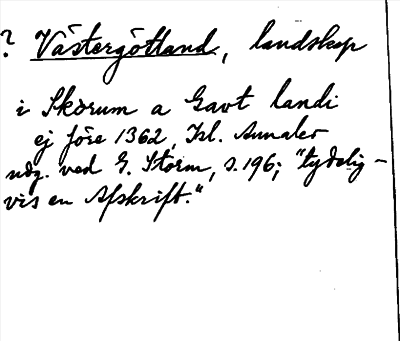 ? Västergötland, landskap
i Skorum a Gavt landi
ej före 1362, Isl. Annaler
udg. ved G. Storm, s. 196; "tydelig-
vis en Afskrift."